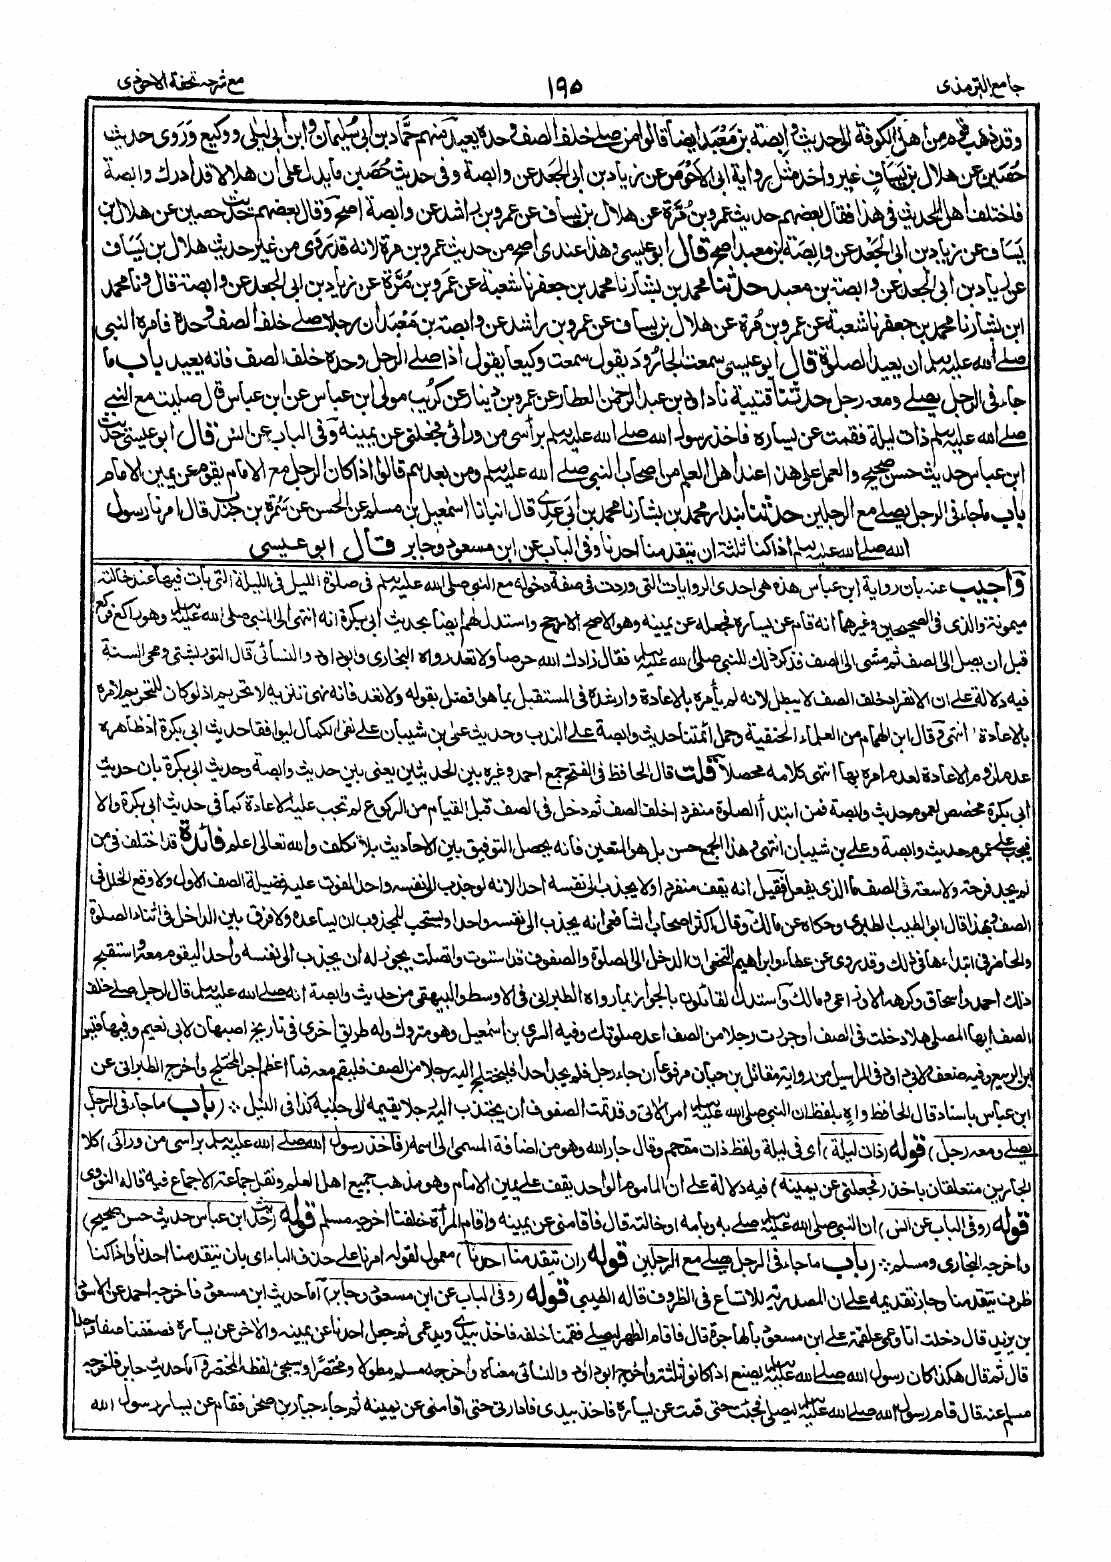 جامع الترمذي
١٩٥
مع شرحه تحفة الاحوذي
وقد ذهب قوم من اهل الكوفة الى حديث وابصة بن معبد ايضا قالوا من صلى خلف الصف وحده يعيد منهم حماد بن ابي سليمان وابن ابي ليلى ووكيع وروى حديث
حصين عن هلال بن يساف غير واحد مثل رواية ابي الاحوص عن زياد بن ابي الجعد عن وابصة وفي حديث حصين ما يدل على ان هلالا قد ادرك وابصة
فاختلف اهل الحديث في هذا فقال بعضهم حديث عمرو بن مُرَّة عن هلال بن يساف عن عمرو بن راشد عن وابصة اصح وقال بعضهم حديث حصين عن هلال بن
يساف عن زياد بن ابي الجعد عن وابصة بن معبد اصح قال ابو عيسى وهذا عندي اصح من حديث عمرو بن مرة لانه قد رُوي من غير حديث هلال بن يساف
عن زياد بن ابي الجعد عن وابصة بن معبد حدثنا محمد بن بشار نا محمد بن جعفر نا شعبة عن عمرو بن مُرَّة عن زياد بن ابي الجعد عن وابصة قال ونا محمد
ابن بشار نا محمد بن جعفر نا شعبة عن عمرو بن مُرة عن هلال بن يساف عن عمرو بن راشد عن وابصة بن معبد ان رجلا صلى خلف الصف وحده فامره النبي
صلى الله عليه وسلم ان يعيد الصلوة قال ابو عيسى سمعت الجارود يقول سمعت وكيعا يقول اذا صلى الرجل وحده خلف الصف فانه يعيد باب ما
جاء في الرجل يصلي ومعه رجل حدثنا قتيبة نا داؤد بن عبد الرحمن العطار عن عمرو بن دينار عن كريب مولى ابن عباس عن ابن عباس قال صليت مع النبي
صلى الله عليه وسلم ذات ليلة فقمت عن يساره فاخذ رسول الله صلى الله عليه وسلم برأسي من ورائي فجعلني عن يمينه وفي الباب عن انس قال ابو عيسى حديث
ابن عباس حديث حسن صحيح والعمل على هذا عند اهل العلم من اصحاب النبي صلى الله عليه وسلم ومن بعدهم قالوا اذا كان الرجل مع الامام يقوم عن يمين الامام
باب ما جاء في الرجل يصلي مع الرجلين حدثنا بندار محمد بن بشار نا محمد بن ابي عدي قال انبانا اسمعيل بن مسلم عن الحسن عن سمرة بن جندب قال امرنا رسول
الله صلى الله عليه وسلم اذا كنا ثلثة ان يتقدمنا احدنا وفي الباب عن ابن مسعود وجابر قال ابو عيسى
واجيب عنه بان رواية ابن عباس هذه هي احدى الروايات التي وردت في صفة دخوله مع النبي صلى الله عليه وسلم في صلوة الليل في الليلة التي بات فيها عند خالته
ميمونة والذي في الصحيحين وغيرها انه قام عن يساره فجعله عن يمينه وهو الاصح الارجح واستدل لهم ايضا بحديث ابي بكرة انه انتهى الى النبي صلى الله عليه وسلم وهو راكع فركع
قبل ان يصل الى الصف ثم مشى الى الصف فذكر ذلك للنبي صلى الله عليه وسلم فقال زادك الله حرصا ولا تعد رواه البخاري وابو داود والنسائي قال التوربشتي ومحي السنة
فيه دلالة على ان الانفراد خلف الصف لا يبطل لانه لم يأمره بالاعادة وارشده في المستقبل بما هو افضل بقوله ولا تعد فانه نهي تنزيه لا تحريم اذ لو كان للتحريم لامره
بالاعادة انتهى وقال ابن الهمام من العلماء الحنفية وحمل ائمتنا حديث وابصة على الندب وحديث علي بن شيبان على نفي الكمال ليوافقا حديث ابي بكرة اذ ظاهره
عدم لزوم الاعادة لعدم امره بها انتهى كلامه محصلا قلت قال الحافظ في الفتح جمع احمد وغيره بين الحديثين يعني بين حديث وابصة وحديث ابي بكرة بان حديث
ابي بكرة مخصص لعموم حديث وابصة فمن ابتدأ الصلوة منفردا خلف الصف ثم دخل في الصف قبل القيام من الركوع لم تجب عليه الاعادة كما في حديث ابي بكرة والا
فيجب على عموم حديث وابصة وعلي بن شيبان انتهى وهذا الجمع حسن بل هو المتعين فانه يحصل التوفيق بين الاحاديث بلا تكلف والله تعالى اعلم فائدة قد اختلف في من
لم يجد فرجة ولا سعة في الصف ما الذي يفعل فقيل انه يقف منفردا ولا يجذب الى نفسه احدا لانه لو جذب الى نفسه واحدا لفوت عليه فضيلة الصف الاول ولاوقع الخلل في
الصف وبهذا قال ابو الطيب الطبري وحكاه عن مالك وقال اكثر اصحاب الشافعي انه يجذب الى نفسه واحدا ويستحب للمجذوب ان يساعده ولا فرق بين الداخل في اثناء الصلوة
والحاضر في ابتداءها في ذلك وقد روي عن عطاء وابراهيم النخعي ان الداخل الى الصلوة والصفوف قد استوت واتصلت يجوز له ان يجذب الى نفسه واحدا ليقوم معه واستقبح
ذلك احمد واسحاق وكرهه الاوزاعي ومالك واستدل القائلون بالجواز بما رواه الطبراني في الاوسط والبيهقي من حديث وابصة انه صلى الله عليه وسلم قال لرجل صلى خلف
الصف ايها المصلي هلا دخلت في الصف او جررت رجلا من الصف اعد صلوتك وفيه السري بن اسمعيل وهو متروك وله طريق اخرى في تاريخ اصبهان لابي نعيم وفيها قيس
ابن الربيع وفيه ضعف ولابي داود في المراسيل من رواية مقاتل بن حيان مرفوعا ان جاء رجل فلم يجد احدا فليختلج اليه رجلا من الصف فليقم معه فما اعظم اجر المختلج واخرج الطبراني عن
ابن عباس باسناد قال الحافظ واه بلفظ ان النبي صلى الله عليه وسلم امر الآتي وقد تمت الصفوف ان يجتذب اليه رجلا يقيمه الى جنبه كذا في النيل (باب ما جاء في الرجل
يصلي ومعه رجل) قوله (ذات ليلة) اي في ليلة ولفظ ذات مقحم وقال جار الله وهو من اضافة المسمى الى اسمه (فاخذ رسول الله صلى الله عليه وسلم براسي من ورائي) كلا
الجارين متعلقان باخذ (فجعلني عن يمينه) فيه دلالة على ان الماموم الواحد يقف على يمين الامام وهو مذهب جميع اهل العلم ونقل جماعة الاجماع فيه قاله النووي
قوله (وفي الباب عن انس) ان النبي صلى الله عليه وسلم صلى به وبامه او خالته قال فاقامني عن يمينه واقام المرأة خلفنا اخرجه مسلم قوله (حديث ابن عباس حديث حسن صحيح)
واخرجه البخاري ومسلم (باب ما جاء في الرجل يصلي مع الرجلين قوله (ان يتقدمنا احدنا) معمول لقوله امرنا على حذف الباء اي بان يتقدمنا احدنا واذا كنا
ظرف يتقدمنا وجاز تقديمه على ان المصدرية للاتساع في الظروف قاله الطيبي قوله (وفي الباب عن ابن مسعود وجابر) اما حديث ابن مسعود فاخرجه احمد عن الاسود
بن يزيد قال دخلت انا وعمي علقمة على ابن مسعود بالهاجرة قال فاقام الظهر ليصلي فقمنا خلفه فاخذ بيدي ويد عمي ثم جعل احدنا عن يمينه والآخر عن يساره فصففنا صفا واحدا
قال ثم قال هكذا كان رسول الله صلى الله عليه وسلم يصنع اذا كانوا ثلثة واخرج ابو داود والنسائي معناه واخرجه مسلم مطولا ومختصرا ويجيئ لفظه المختصر واما حديث جابر فاخرجه
مسلم عنه قال قام رسول الله صلى الله عليه وسلم ليصلي فجئت حتى قمت عن يساره فاخذ بيدي فادارني حتى اقامني عن يمينه ثم جاء جبار بن صخر فقام عن يسار رسول الله